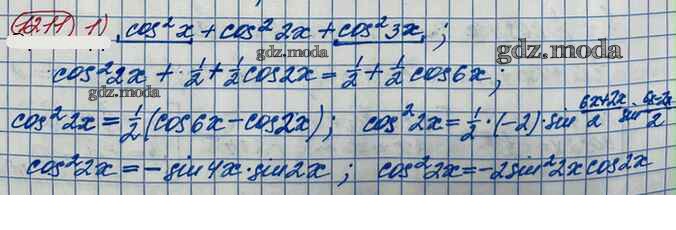 1211) 1) cos²x + cos²2x + cos²3x ;
gdz.moda
gdz.moda
cos²2x + 1/2 + 1/2 cos2x = 1/2 + 1/2 cos6x ;
gdz.moda
cos²2x = 1/2 (cos6x - cos2x) ; cos²2x = 1/2 · (-2) · sin (6x+2x)/2 · sin (6x-2x)/2
cos²2x = - sin4x · sin2x ; cos²2x = -2sin²2x cos2x